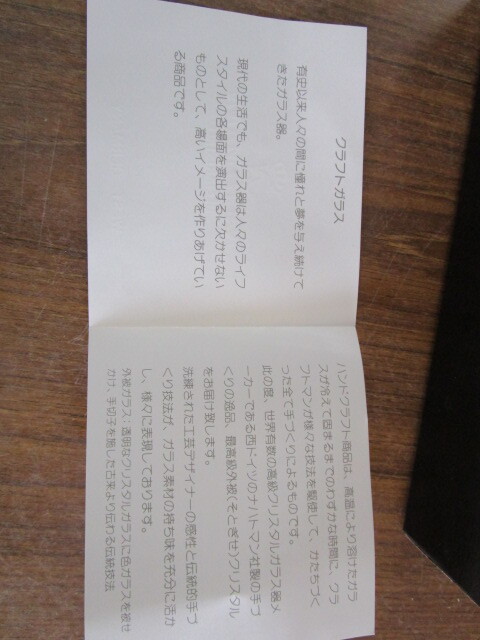 クラフトガラス
有史以来人々の間に憧れと夢を与え続けて
きたガラス器。
現代の生活でも、ガラス器は人々のライフ
スタイルの各場面を演出するに欠かせない
ものとして、高いイメージを作りあげてい
る商品です。
ハンドクラフト商品は、高温により溶けたガラ
スが冷えて固まるまでのわずかな時間に、クラ
フトマンが様々な技法を駆使して、かたちづく
った全て手づくりによるものです。
此の度、世界有数の高級クリスタルガラス器メ
ーカーである西ドイツのナハトマン社製の手づ
くりの逸品、最高級外被(そとぎせ)クリスタル
をお届け致します。
洗練された工芸デザイナーの感性と伝統的手づ
くり技法が、ガラス素材の持ち味を充分に活か
し、様々に表現しております。
外被ガラス:透明なクリスタルガラスに色ガラスを被せ
かけ、手切子を施した古来より伝わる伝統技法